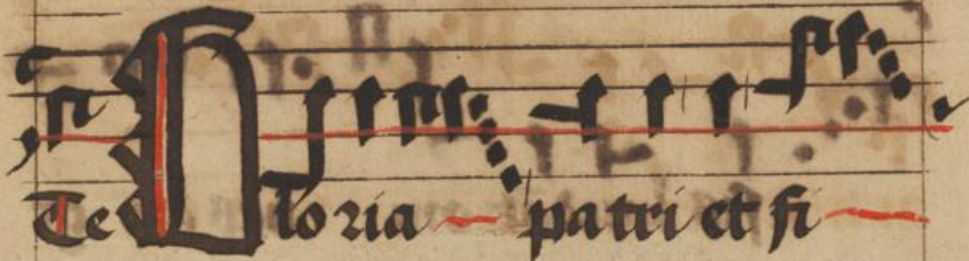 Te Gloria patri et fi